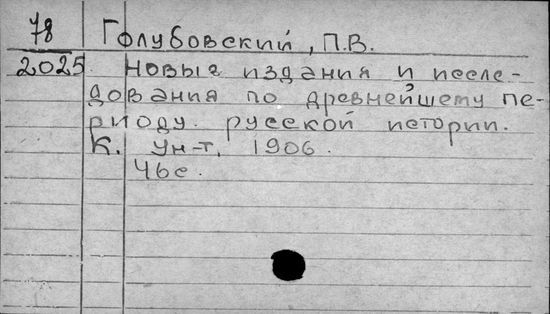 78 Голубовский, П.В.
2025 Новые издания и иссле-
дования по древнейшему пе-
риоду русской истории.
К. ун-т, 1906.
46с.